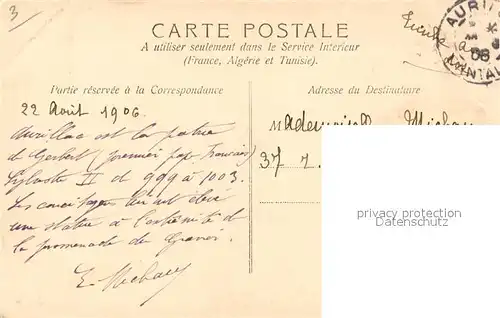 3
CARTE POSTALE
A utiliser seulement dans le Service Intérieur
(France, Algérie et Tunisie).
Partie réservée à la Correspondance
Adresse du Destinataire
22 Août 1906.
Aurillac est la patrie
de Gerbert (premier pape Français)
Sylvestre II de 999 à 1003.
Les concitoyens lui ont élevé
une statue à l'extrémité de
la promenade du Gravier.
E. Michau
Mademoiselle Michau
37
AURIL
06
CANTAL
privacy protection
Datenschutz